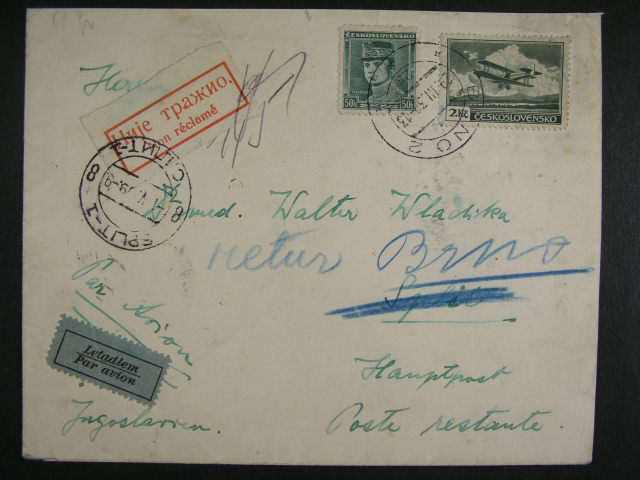 ČESKOSLOVENSKO
50h 50h
ČESKOSLOVENSKO
BRNO 2
Herrn
Није тражио.
Non réclamé
СПЛИТ-1
8 8
SPLIT-1
Dr med. Walter Wladika
retur Brno
Split
Par Avion
Letadlem
Par avion
Hauptpost
Jugoslavien.
Poste restante.